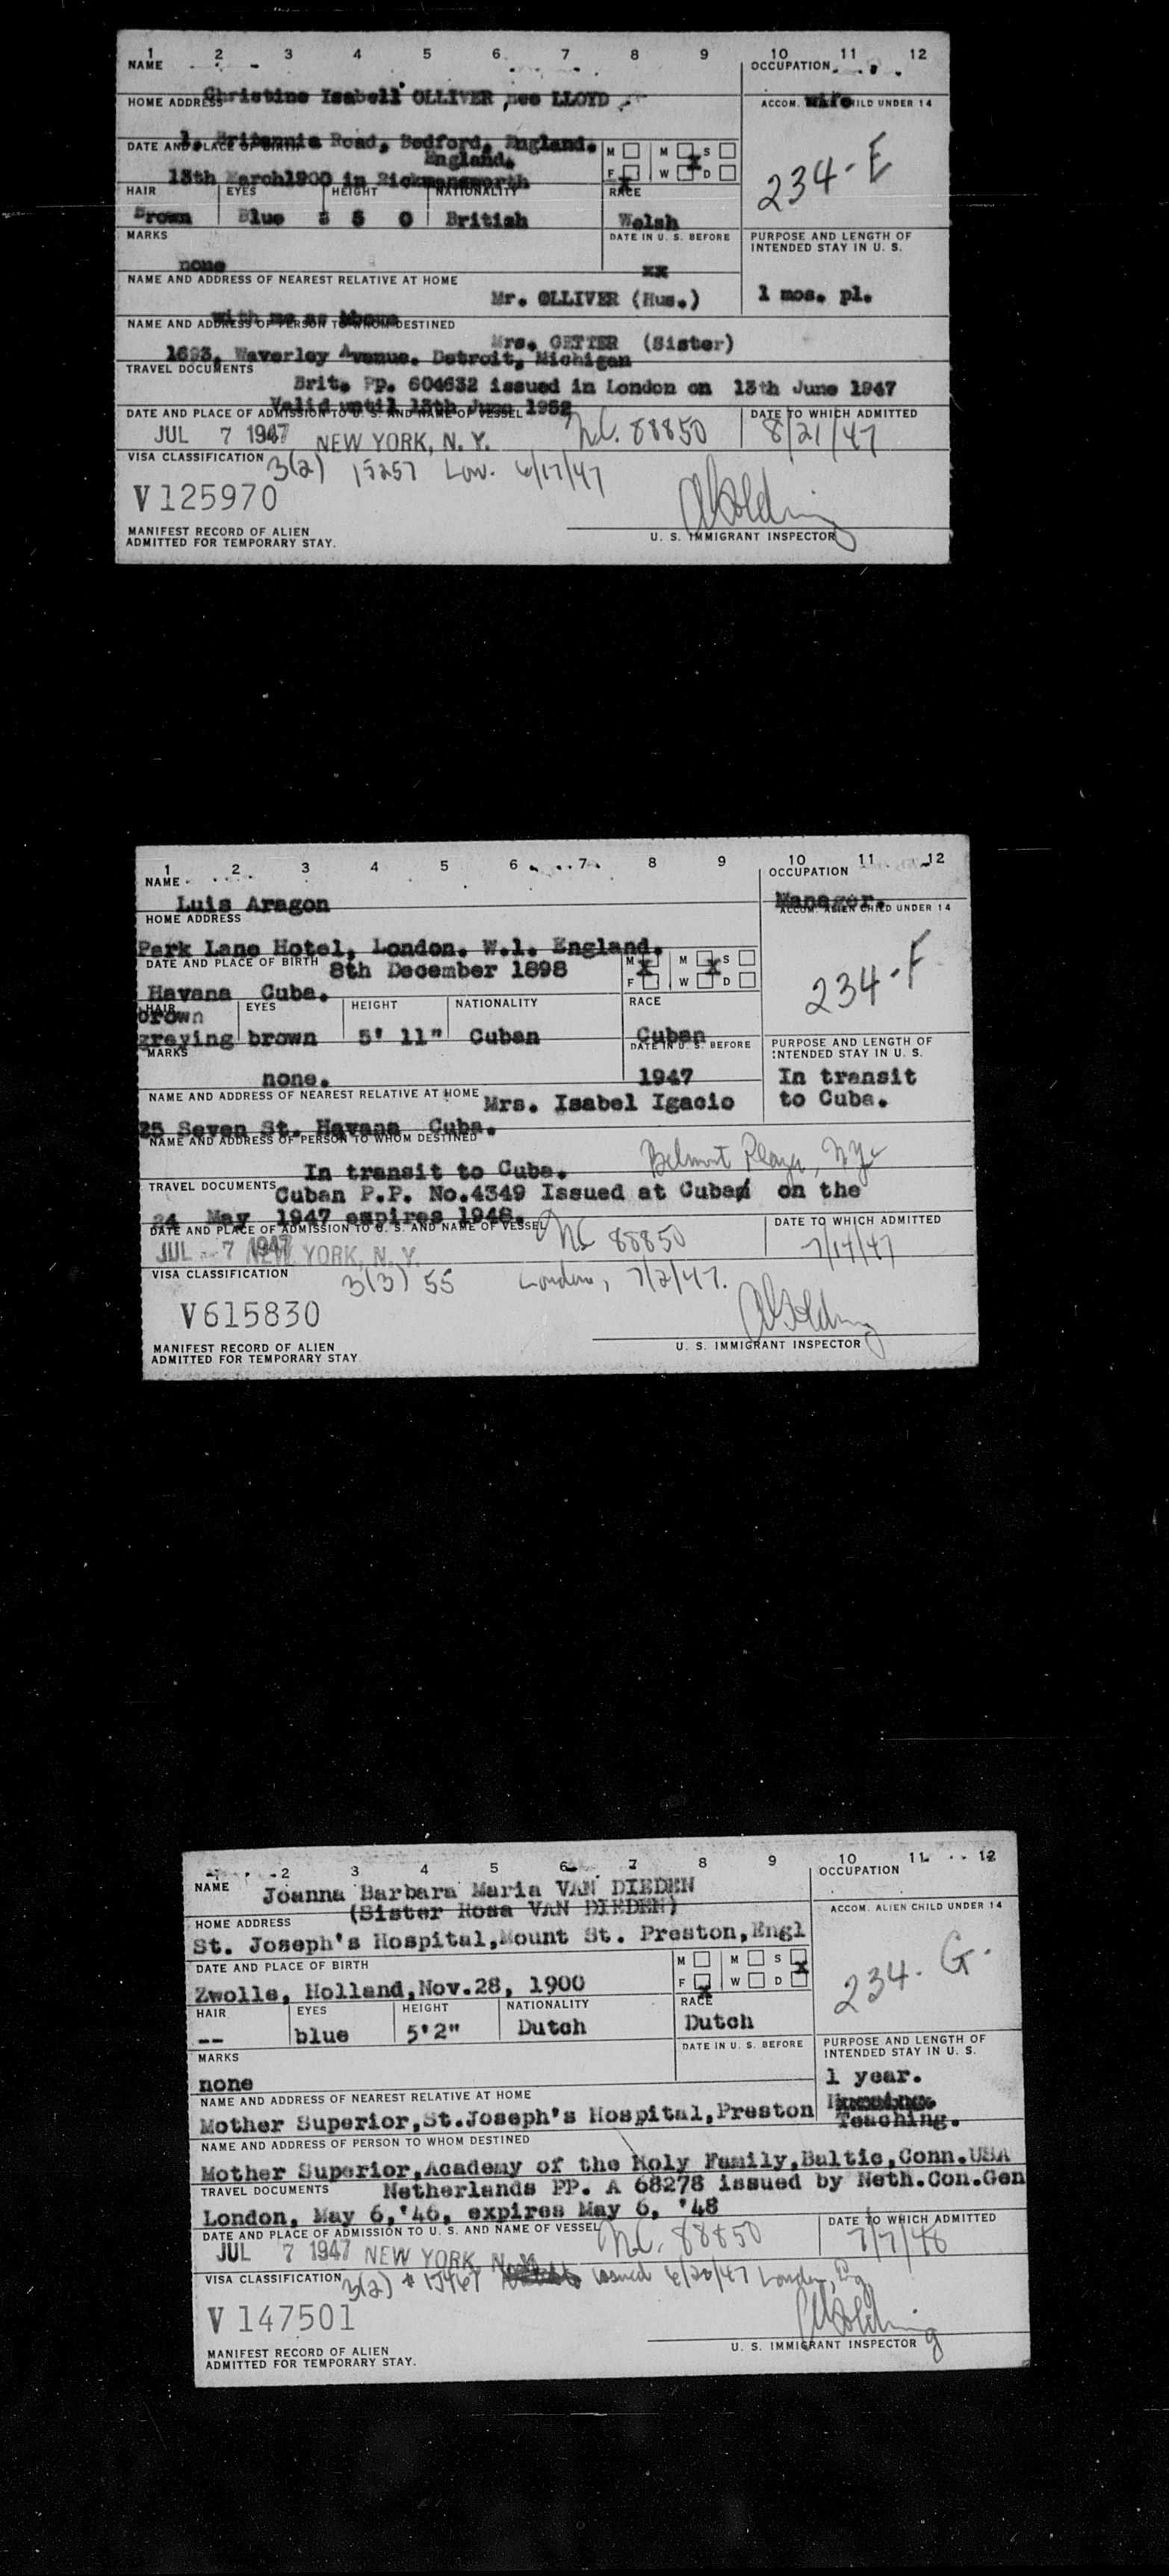 1 2 3 4 5 6 7 8 9 10 11 12
NAME OCCUPATION
Christine Isabell OLLIVER nee LLOYD wife
HOME ADDRESS ACCOM. CHILD UNDER 14
1, Britannia Road, Bedford, England.
DATE AND PLACE OF BIRTH M M S
England. F W D
13th March1900 in Rickmansworth 234-E
HAIR EYES HEIGHT NATIONALITY RACE
Brown Blue 5 0 British Welsh
MARKS DATE IN U. S. BEFORE PURPOSE AND LENGTH OF
INTENDED STAY IN U. S.
none xx
NAME AND ADDRESS OF NEAREST RELATIVE AT HOME
Mr. OLLIVER (Hus.) 1 mos. pl.
with me as Above
NAME AND ADDRESS OF PERSON TO WHOM DESTINED
Mrs. GETTER (Sister)
1693, Waverley Avenue. Detroit, Michigan
TRAVEL DOCUMENTS
Brit. Pp. 604632 issued in London on 13th June 1947
Valid until 13th June 1952
DATE AND PLACE OF ADMISSION TO U. S. AND NAME OF VESSEL DATE TO WHICH ADMITTED
JUL 7 1947 NEW YORK, N. Y. N.C. 88850 8/21/47
VISA CLASSIFICATION 3(2) 15257 Lon. 6/17/47
V125970
MANIFEST RECORD OF ALIEN
ADMITTED FOR TEMPORARY STAY.
U. S. IMMIGRANT INSPECTOR
1 2 3 4 5 6 7 8 9 10 11 12
NAME OCCUPATION
Luis Aragon Manager.
HOME ADDRESS ACCOM. ALIEN CHILD UNDER 14
Park Lane Hotel, London. W.1. England.
DATE AND PLACE OF BIRTH 8th December 1898 M M S
F W D
Havana Cuba. 234-F
HAIR EYES HEIGHT NATIONALITY RACE
brown
greying brown 5' 11" Cuban Cuban
MARKS DATE IN U. S. BEFORE PURPOSE AND LENGTH OF
INTENDED STAY IN U. S.
none. 1947 In transit
to Cuba.
NAME AND ADDRESS OF NEAREST RELATIVE AT HOME Mrs. Isabel Igacio
25 Seven St. Havana Cuba.
NAME AND ADDRESS OF PERSON TO WHOM DESTINED
In transit to Cuba. Belmont Plaza, NYC
TRAVEL DOCUMENTS Cuban P.P. No.4349 Issued at Cuba on the
24 May 1947 expires 1948.
DATE AND PLACE OF ADMISSION TO U. S. AND NAME OF VESSEL DATE TO WHICH ADMITTED
JUL 7 1947 NEW YORK, N. Y. NC 88850 7/17/47
VISA CLASSIFICATION 3(3) 55 London, 7/2/47.
V615830
MANIFEST RECORD OF ALIEN
ADMITTED FOR TEMPORARY STAY
U. S. IMMIGRANT INSPECTOR
2 3 4 5 6 7 8 9 10 11 12
NAME OCCUPATION
Joanna Barbara Maria VAN DIEDEN
(Sister Rosa VAN DIEDEN)
HOME ADDRESS ACCOM. ALIEN CHILD UNDER 14
St. Joseph's Hospital,Mount St. Preston,Engl
DATE AND PLACE OF BIRTH M M S
F W D
Zwolle, Holland,Nov.28, 1900 234. G.
HAIR EYES HEIGHT NATIONALITY RACE
-- blue 5'2" Dutch Dutch
MARKS DATE IN U. S. BEFORE PURPOSE AND LENGTH OF
INTENDED STAY IN U. S.
none 1 year.
NAME AND ADDRESS OF NEAREST RELATIVE AT HOME
Mother Superior,St.Joseph's Hospital,Preston Teaching.
NAME AND ADDRESS OF PERSON TO WHOM DESTINED
Mother Superior,Academy of the Holy Family,Baltic,Conn.USA
TRAVEL DOCUMENTS Netherlands PP. A 68278 issued by Neth.Con.Gen
London, May 6,'46, expires May 6, '48
DATE AND PLACE OF ADMISSION TO U. S. AND NAME OF VESSEL DATE TO WHICH ADMITTED
JUL 7 1947 NEW YORK, N. Y. N.C. 88850 7/7/48
VISA CLASSIFICATION 3(2) # 15467 issued 6/20/47 London, Eng
V 147501
MANIFEST RECORD OF ALIEN
ADMITTED FOR TEMPORARY STAY.
U. S. IMMIGRANT INSPECTOR